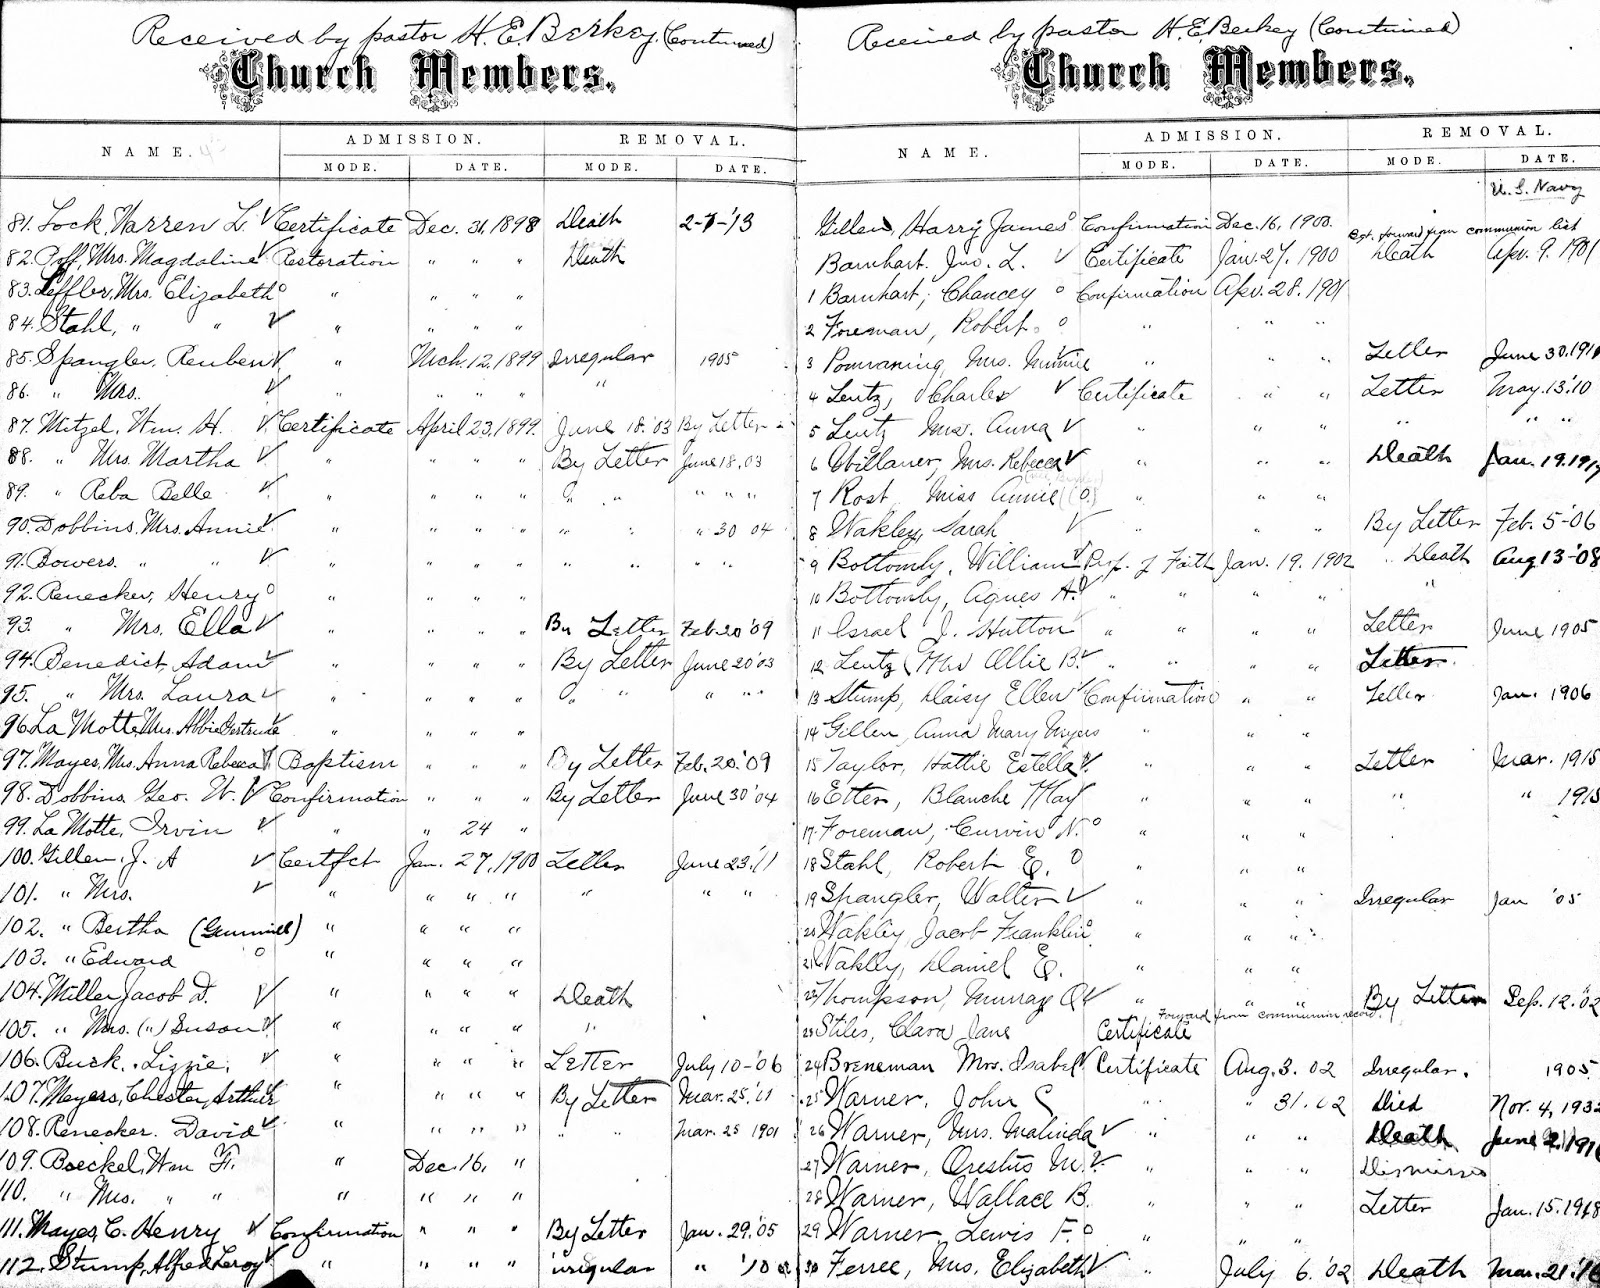 Received by pastor H. E. Berkey. (Continued)
Church Members.
NAME. ADMISSION. REMOVAL.
MODE. DATE. MODE. DATE.
81. Lock, Warren L. ✓ Certificate Dec. 31, 1898 Death 2-7-'13
82. Poff, Mrs. Magdaline ✓ Restoration " " " Death
83. Leffler, Mrs. Elizabeth o " " " "
84. Stahl, " " ✓ " " " "
85. Spangler, Reuben ✓ " Mch. 12, 1899 Irregular 1905
86. " Mrs. ✓ " " " " "
87. Mitzel, Wm. H. ✓ Certificate April 23, 1899. June 18, '03 By Letter
88. " Mrs. Martha ✓ " " " " By Letter June 18, 03
89. " Reba Belle ✓ " " " " " " " " "
90. Dobbins, Mrs. Annie ✓ " " " " " " " 30 04
91. Bowers. " " ✓ " " " " " " " " "
92. Renecker, Henry o " " " "
93. " Mrs. Ella ✓ " " " " By Letter Feb. 20 '09
94. Benedict, Adam ✓ " " " " By Letter June 20 '03
95. " Mrs. Laura ✓ " " " " " " " " "
96. La Motte, Mrs. Abbie Gertrude ✓ " " " "
97. Mayes, Mrs. Anna Rebecca ✓ Baptism " " " By Letter Feb. 20. '09
98. Dobbins, Geo. W. ✓ Confirmation " " " By Letter June 30 '04
99. La Motte, Irvin ✓ " " 24 "
100. Gillen, J. A ✓ Certfct Jan. 27, 1900 Letter June 23, '11
101. " Mrs. ✓ " " " " " " "
102. " Bertha " " " "
103. " Edward o " " " "
104. Miller, Jacob D. ✓ " " " " Death
105. " Mrs. (") Susan ✓ " " " " "
106. Buck, Lizzie, ✓ " " " " Letter July 10-'06
107. Meyers, Chester Arthur ✓ " " " " By Letter Mar. 25, '11
108. Renecker, David ✓ " " " " " " Mar. 25 1901
109. Boeckel, Wm F. " Dec. 16, "
110. " Mrs. " " " " " "
111. Mayes, C. Henry ✓ Confirmation " " " By Letter Jan. 29. '05
112. Stump, Alfred Leroy ✓ " " " " irregular " '10
Received by pastor H. E. Berkey (Continued)
Church Members.
NAME. ADMISSION. REMOVAL.
MODE. DATE. MODE. DATE.
U. S. Navy
Gillen, Harry James o Confirmation Dec. 16, 1900. forward from communion list
Barnhart. Jno. L. ✓ Certificate Jan. 27, 1900 Death Apr. 9. 1901
1 Barnhart, Chancey o Confirmation Apr. 28. 1901
2 Foreman, Robert. o " " "
3 Pomraning, Mrs. Minnie ✓ " " " Letter June 30. 1911
4 Lentz, Charles ✓ Certificate " " Letter May. 13. '10
5 Lentz Mrs. Anna ✓ " " " " " "
6 Mrs. Rebecca ✓ " " " Death Jan. 19. 1917
7 Rost Miss Annie (o) " " "
8 Wakley, Sarah ✓ " " " By Letter Feb. 5-06
9 Bottomly, William ✓ Prof. of Faith Jan. 19. 1902 Death Aug 13-'08
10 Bottomly, Agnes A. o " " " " "
11 Israel J. Hutton " " " " Letter June 1905
12 Lentz, Mrs Ollie B. ✓ " " " " Letter.
13 Stump, Daisy Ellen ✓ Confirmation " " Letter Jan. 1906
14 Gillen, Anna Mary Myers " " "
15 Taylor, Hattie Estella ✓ " " " Letter Mar. 1915
16 Etter, Blanche May " " " " " 1915
17. Foreman, Curvin N. o " " "
18 Stahl, Robert E. o " " "
19 Spangler, Walter ✓ " " " Irregular Jan '05
20 Wakley, Jacob Franklin o " " "
21 Wakley, Daniel E. " " "
22 Thompson, Murray Q ✓ " " " By Letter Sep. 12. '02
forward from communion record.
23 Stiles, Clara Jane Certificate
24 Breneman Mrs. Isabel ✓ Certificate Aug. 3. 02 Irregular. 1905
25 Warner, John C " " 31. 02 Died Nov. 4, 1932
26 Warner, Mrs. Malinda ✓ " " " Death June 2, 1916
27 Warner, Orestus M. ✓ " " " Dismissed
28 Warner, Wallace B. " " " Letter Jan. 15. 1918
29 Warner, Lewis F. o " " "
30 Ferree, Mrs. Elizabeth ✓ July 6. '02 Death Mar. 21. '16